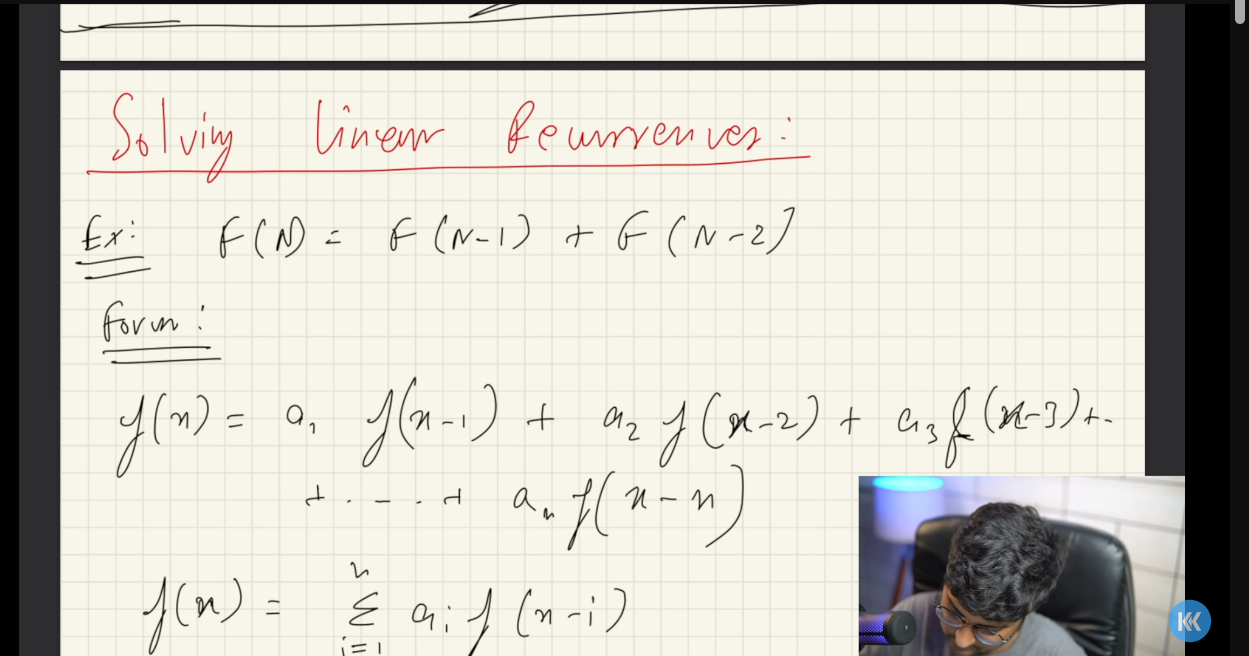 Solving Linear Recurrences:
Ex: F(N) = F(N-1) + F(N-2)
Form:
f(n) = a₁ f(n-1) + a₂ f(n-2) + a₃ f(n-3) + -
+ . - . + aₙ f(n-n)
f(n) = n Σ i=1 aᵢ f(n-i)
KK